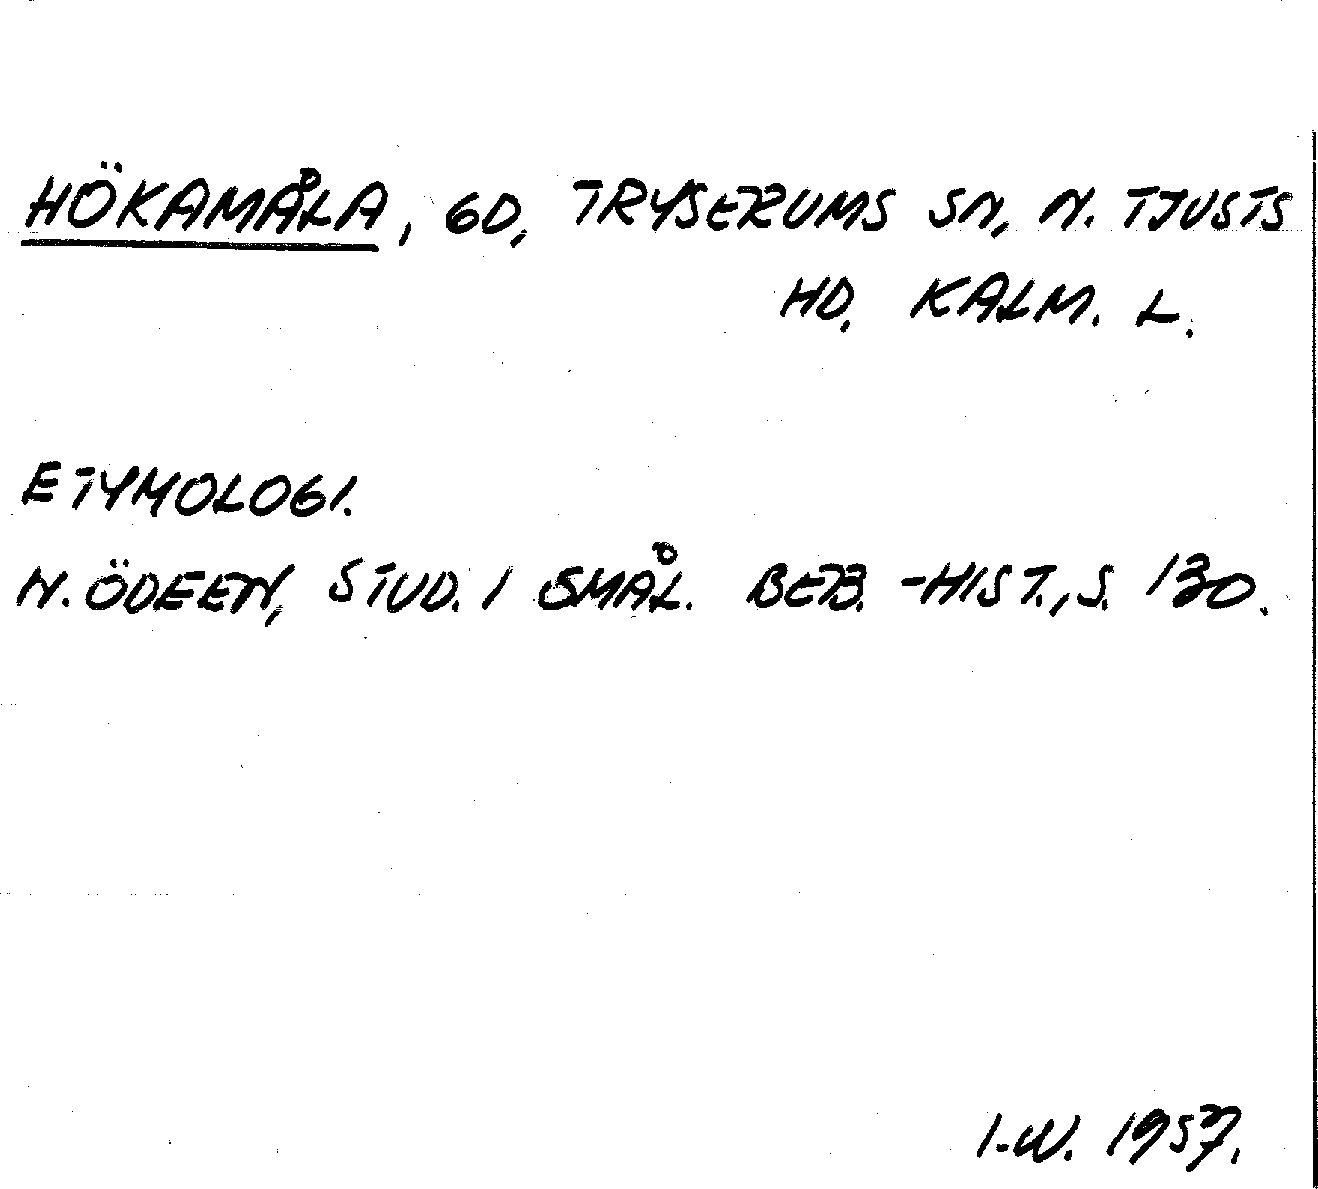 HÖKAMÅLA, GD, TRYSERUMS SN, N. TJUSTS
HD. KALM. L.
ETYMOLOGI.
N. ÖDEEN, STUD. I SMÅL. BEB. -HIST., S. 130.
I.W. 1957.